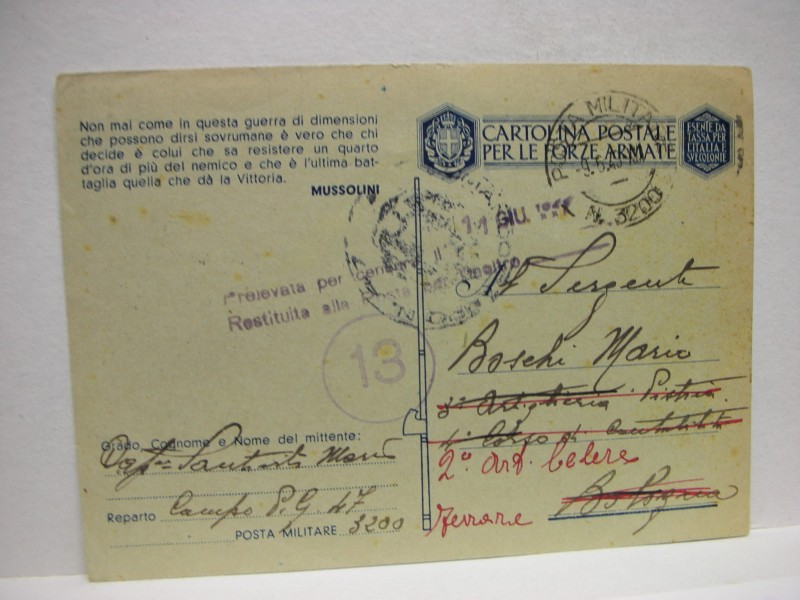 Non mai come in questa guerra di dimensioni
che possono dirsi sovrumane è vero che chi
decide è colui che sa resistere un quarto
d'ora di più del nemico e che è l'ultima bat-
taglia quella che dà la Vittoria.
MUSSOLINI
CARTOLINA POSTALE
PER LE FORZE ARMATE
ESENTE DA
TASSA PER
L'ITALIA E
SVE COLONIE
POSTA MILITARE
N. 3200
11 GIU.
Prelevata per censura
Restituita alla
13
Al Sergente
Boschi Mario
3° Artigliera
4° Corso di
2° Art. Celere
Bologna
Ferrara
Grado, Cognome e Nome del mittente:
Mario
Reparto Campo P.G. 47
POSTA MILITARE 3200